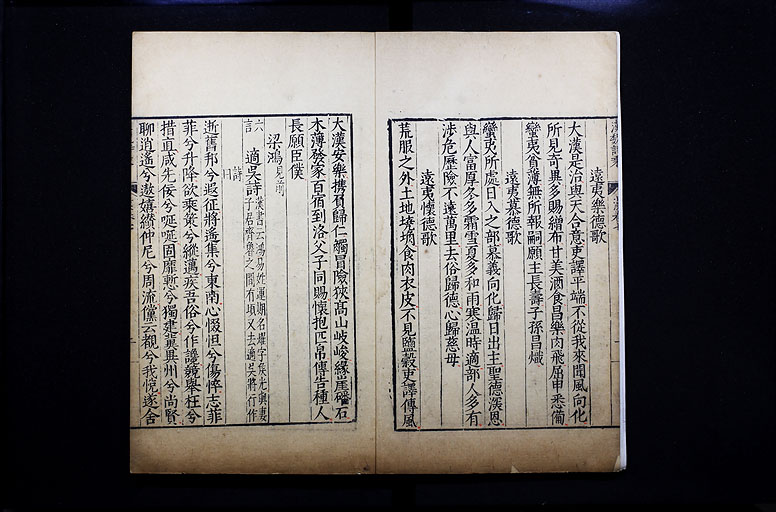 遠夷樂德歌
大漢是治與天合意吏譯平端不從我來聞風向化
所見竒異多賜繒布甘美酒食昌樂肉飛屈申悉備
蠻夷貧薄無所報嗣願主長壽子孫昌熾
遠夷慕德歌
蠻夷所處日入之部慕義向化歸日出主聖德深恩
與人富厚冬多霜雪夏多和雨寒温時適部人多有
涉危歷險不遠萬里去俗歸德心歸慈母
遠夷懷德歌
荒服之外土地墝埆食肉衣皮不見鹽穀吏譯傳風
大漢安樂携負歸仁觸冒險狹高山岐峻緣崖磻石
木薄發家百宿到洛父子同賜懷抱匹帛傳告種人
長願臣僕
梁鴻見前
適吳詩漢書云鴻易姓運期名燿字侯光與妻子居齊魯之間有頃又去適吳將行作詩曰
六言
逝舊邦兮遐征將遙集兮東南心惙怛兮傷悴志菲
菲兮升降欲乘策兮縱邁疾吾俗兮作讒競舉枉兮
措直咸先佞兮唌唌固靡慙兮獨建兾異州兮尚賢
聊逍遙兮遨嬉纘仲尼兮周流儻云覩兮我悅遂舍